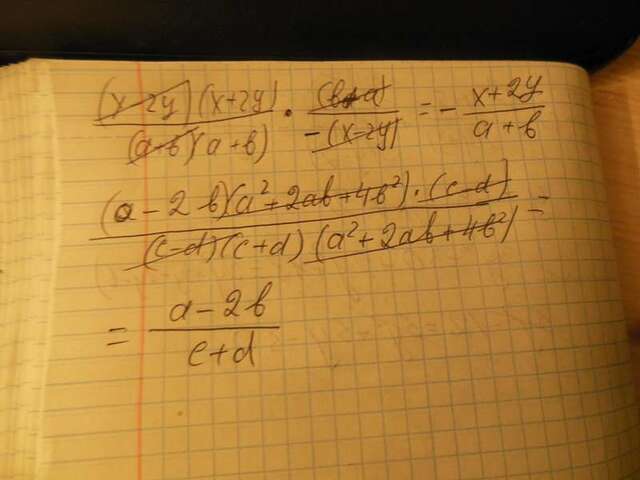 (x-2y)(x+2y)/(a-b)(a+b) · (b-a)/-(x-2y) = - x+2y/a+b
(a-2b)(a²+2ab+4b²)·(c-d)/(c-d)(c+d)(a²+2ab+4b²) =
= a-2b/c+d